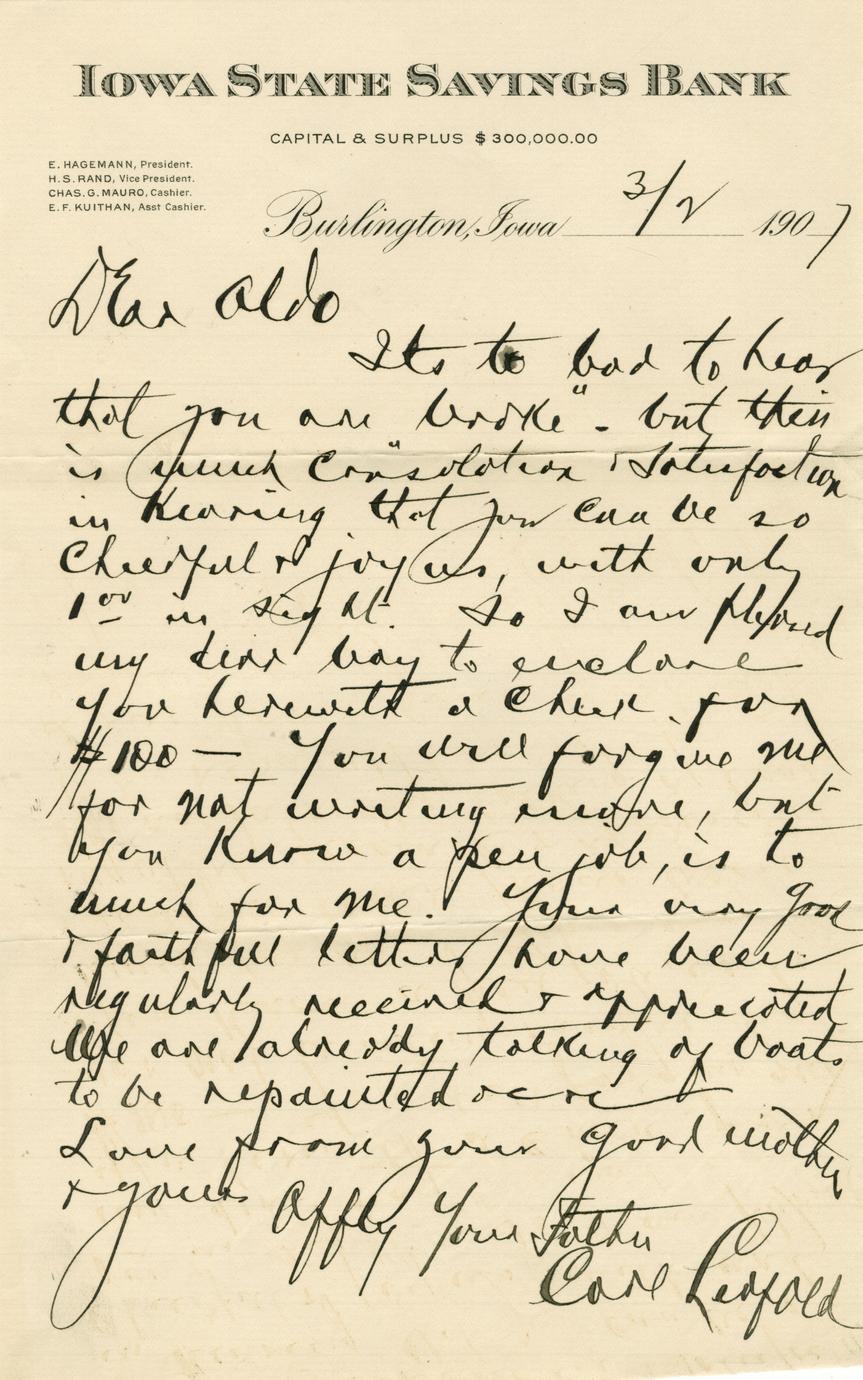 IOWA STATE SAVINGS BANK
CAPITAL & SURPLUS $300,000.00
E. HAGEMANN, President.
H. S. RAND, Vice President.
CHAS. G. MAURO, Cashier.
E. F. KUITHAN, Asst Cashier.
Burlington, Iowa 3/2 1907
Dear Aldo
Its to bad to hear
that you are broke" - but this
is much consolation & Satisfaction
in hearing that you can be so
Cheerful & joyus, with only
1 00 in sight. So I am pleased
my dear boy to enclose
you herewith a check for
$100 — You will forgive me
for not writing more, but
you know a pen job, is to
much for me. Your very good
& faithfull letters have been
regularly received & appreciated
We are already talking of boats
to be repainted
Love from your good mother
& yours Affly Your Father
Carl Leopold